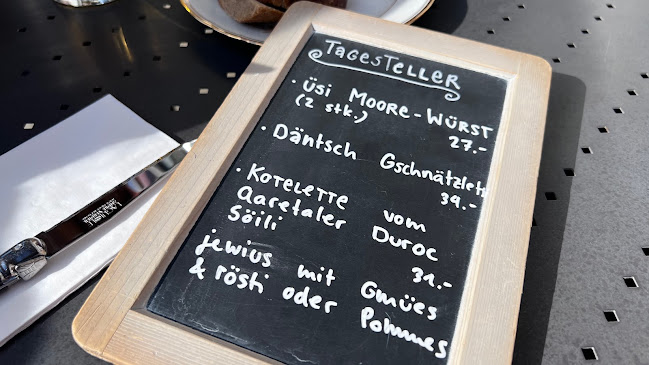 TagesTeller
· Üsi Moore-Würst
(2 stk.) 27.-
· Däntsch Gschnätzlets
39.-
· Kotelette vom
Aaretaler Duroc
Söili 31.-
jewius mit Gmües
& rösti oder Pommes